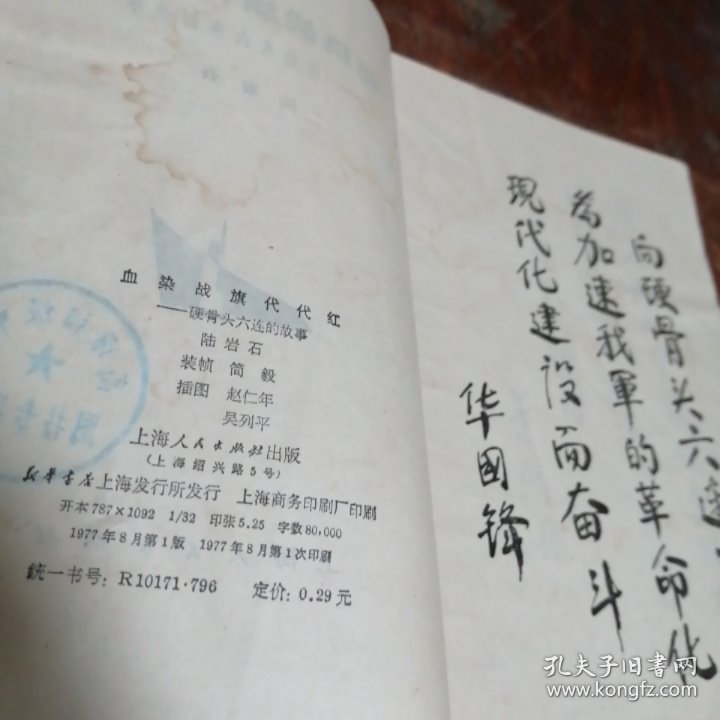 血染战旗代代红
——硬骨头六连的故事
陆岩石
装帧 简毅
插图 赵仁年
吴列平
上海人民出版社出版
(上海绍兴路5号)
新华书店上海发行所发行 上海商务印刷厂印刷
开本787×1092 1/32 印张5.25 字数80,000
1977年8月第1版 1977年8月第1次印刷
统一书号：R10171·796 定价：0.29元
向硬骨头六连
为加速我軍的革命化
現代化建设而奋斗
华國锋
孔夫子旧书网
www.kongfz.com